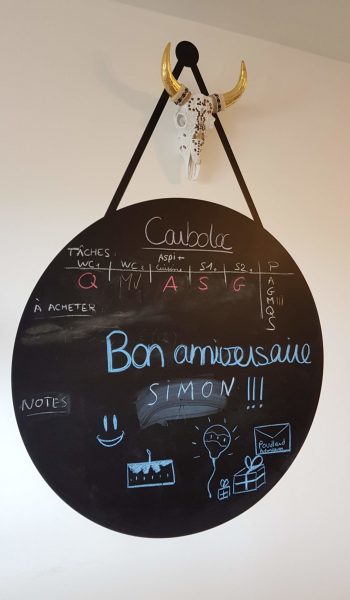 Caubolac
TÂCHES:
WC1 WC2 Aspi + Cuisine S1 S2 P
Q MV A S G
A
G
M III
Q
S
À ACHETER :
Bon anniversaire
SIMON !!!
NOTES
Poudlard